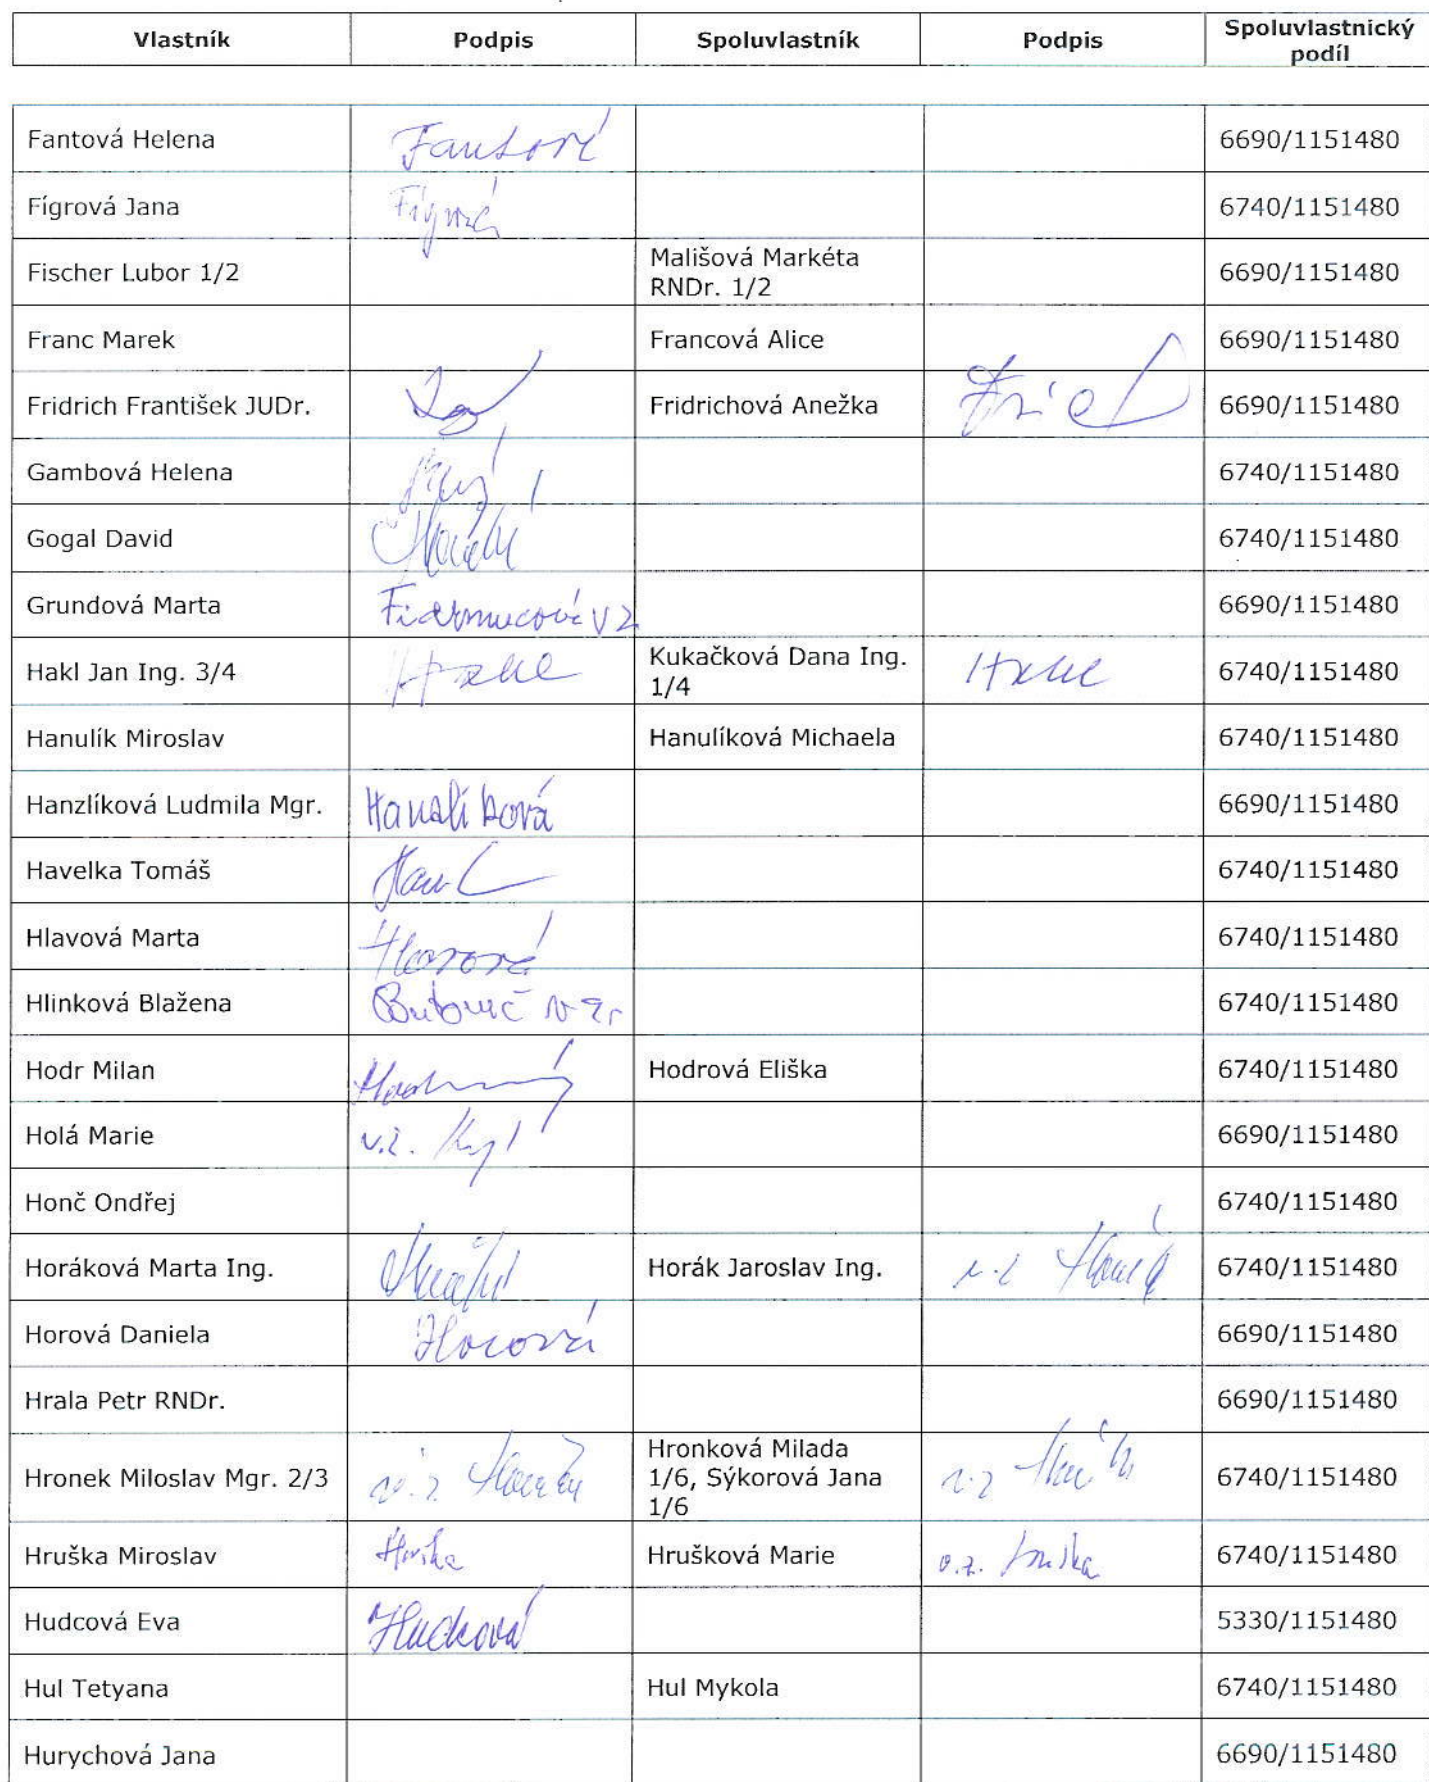 Vlastník Podpis Spoluvlastník Podpis Spoluvlastnický
podíl
Fantová Helena Fantová 6690/1151480
Fígrová Jana Fígrová 6740/1151480
Fischer Lubor 1/2 Mališová Markéta
RNDr. 1/2 6690/1151480
Franc Marek Francová Alice 6690/1151480
Fridrich František JUDr. Fridrichová Anežka 6690/1151480
Gambová Helena 6740/1151480
Gogal David 6740/1151480
Grundová Marta 6690/1151480
Hakl Jan Ing. 3/4 Kukačková Dana Ing.
1/4 6740/1151480
Hanulík Miroslav Hanulíková Michaela 6740/1151480
Hanzlíková Ludmila Mgr. Hanzlíková 6690/1151480
Havelka Tomáš 6740/1151480
Hlavová Marta Hlavová 6740/1151480
Hlinková Blažena 6740/1151480
Hodr Milan Hodrová Eliška 6740/1151480
Holá Marie v.z. 6690/1151480
Honč Ondřej 6740/1151480
Horáková Marta Ing. Horák Jaroslav Ing. v.z 6740/1151480
Horová Daniela Horová 6690/1151480
Hrala Petr RNDr. 6690/1151480
Hronek Miloslav Mgr. 2/3 v.z. Hronková Milada
1/6, Sýkorová Jana v.z 6740/1151480
1/6
Hruška Miroslav Hruška Hrušková Marie v.z. Hruška 6740/1151480
Hudcová Eva Hudcová 5330/1151480
Hul Tetyana Hul Mykola 6740/1151480
Hurychová Jana 6690/1151480